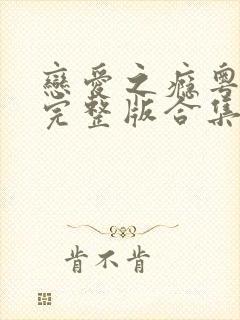 戀愛之癮粵
完整版合集
肯不肯